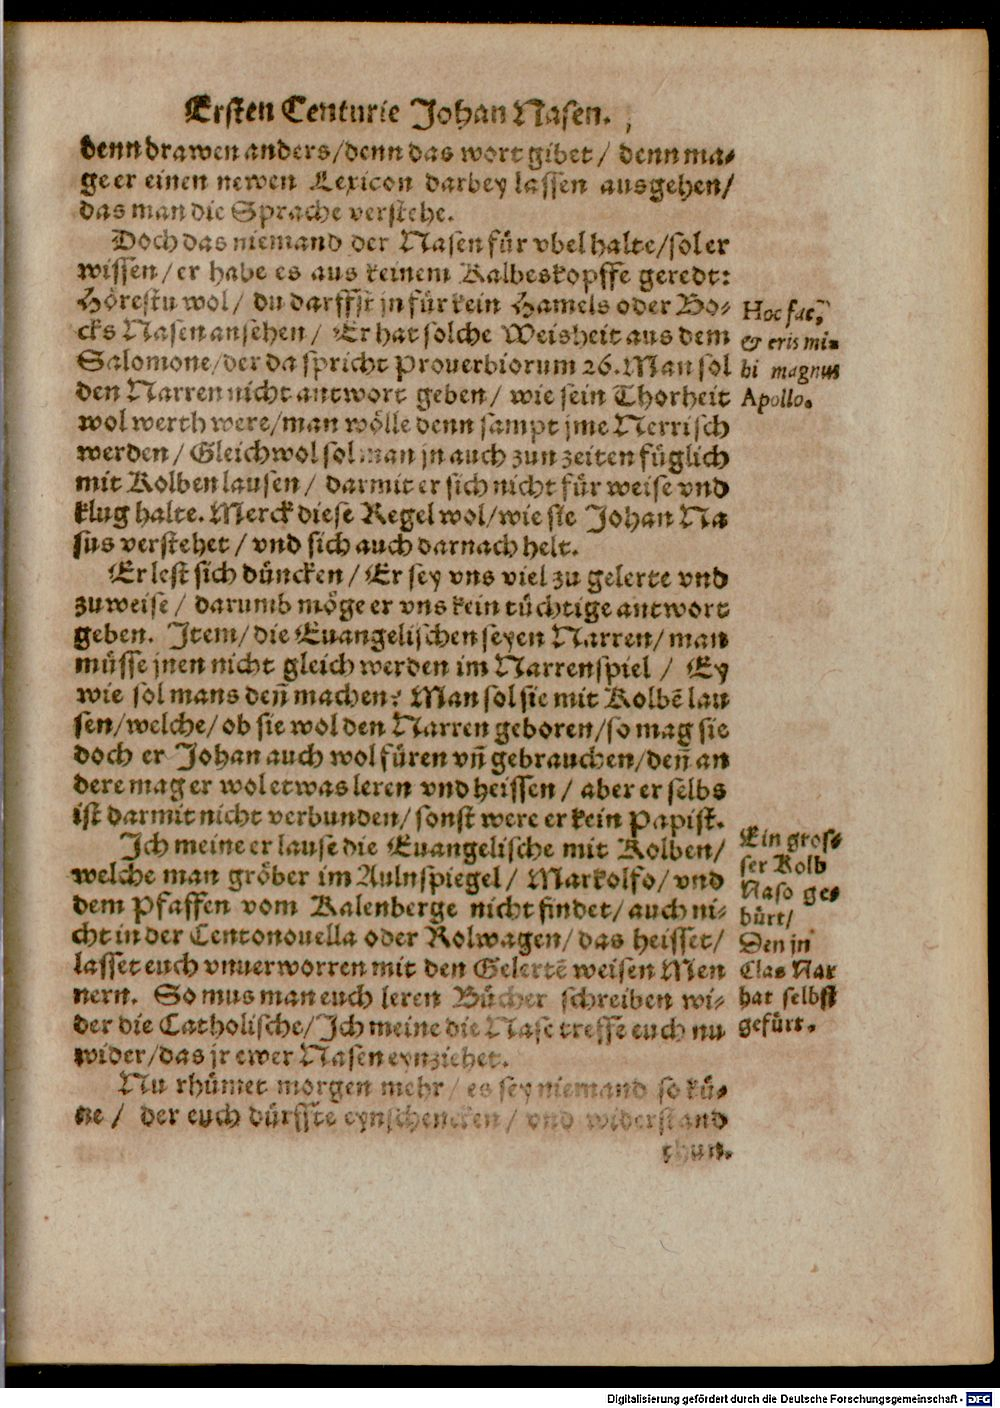 Ersten Centurie Johan Nasen.
denn drawen anders/denn das wort gibet/ denn ma-
ge er einen newen Lexicon darbey lassen ausgehen/
das man die Sprache verstehe.
Doch das niemand der Nasen für vbel halte/sol er
wissen/er habe es aus keinem Kalbeskopffe geredt:
Hörestu wol/ du darffst jn für kein Hamels oder Bo-
cks Nasen ansehen/ Er hat solche Weisheit aus dem
Salomone/der da spricht Prouerbiorum 26. Man sol
den Narren nicht antwort geben/ wie sein Thorheit
wol werth were/man wölle denn sampt jme Nerrisch
werden/ Gleichwol sol man jn auch zun zeiten füglich
mit Kolben lausen/ darmit er sich nicht für weise vnd
klug halte. Merck diese Regel wol/wie sie Johan Na
sus verstehet/ vnd sich auch darnach helt.
Er lest sich düncken/ Er sey vns viel zu gelerte vnd
zu weise/ darumb möge er vns kein tüchtige antwort
geben. Item/die Euangelischen seyen Narren/man
müsse jnen nicht gleich werden im Narrenspiel/ Ey
wie sol mans deñ machen? Man sol sie mit Kolbē lau
sen/welche/ob sie wol den Narren geboren/so mag sie
doch er Johan auch wol füren vñ gebrauchen/deñ an
dere mag er wol etwas leren vnd heissen/ aber er selbs
ist darmit nicht verbunden/sonst were er kein Papist.
Ich meine er lause die Euangelische mit Kolben/
welche man gröber im Aulnspiegel/ Markolfo/ vnd
dem Pfaffen vom Kalenberge nicht findet/ auch ni-
cht in der Centonouella oder Rolwagen/das heisset/
lasset euch vnuerworren mit den Gelertē weisen Men
nern. So mus man euch leren Bücher schreiben wi-
der die Catholische/Ich meine die Nase treffe euch nu
wider/das jr ewer Nasen eynziehet.
Nu rhümet morgen mehr/ es sey niemand so kü-
ne/ der euch dürffte eynschencken/ vnd widerstand
thun.
Hoc fac,
& eris mi-
hi magnus
Apollo.
Ein gros-
ser Kolb
Naso ge-
bürt/
Den jn
Clas Nar
hat selbst
gefürt.
Digitalisierung gefördert durch die Deutsche Forschungsgemeinschaft - DFG